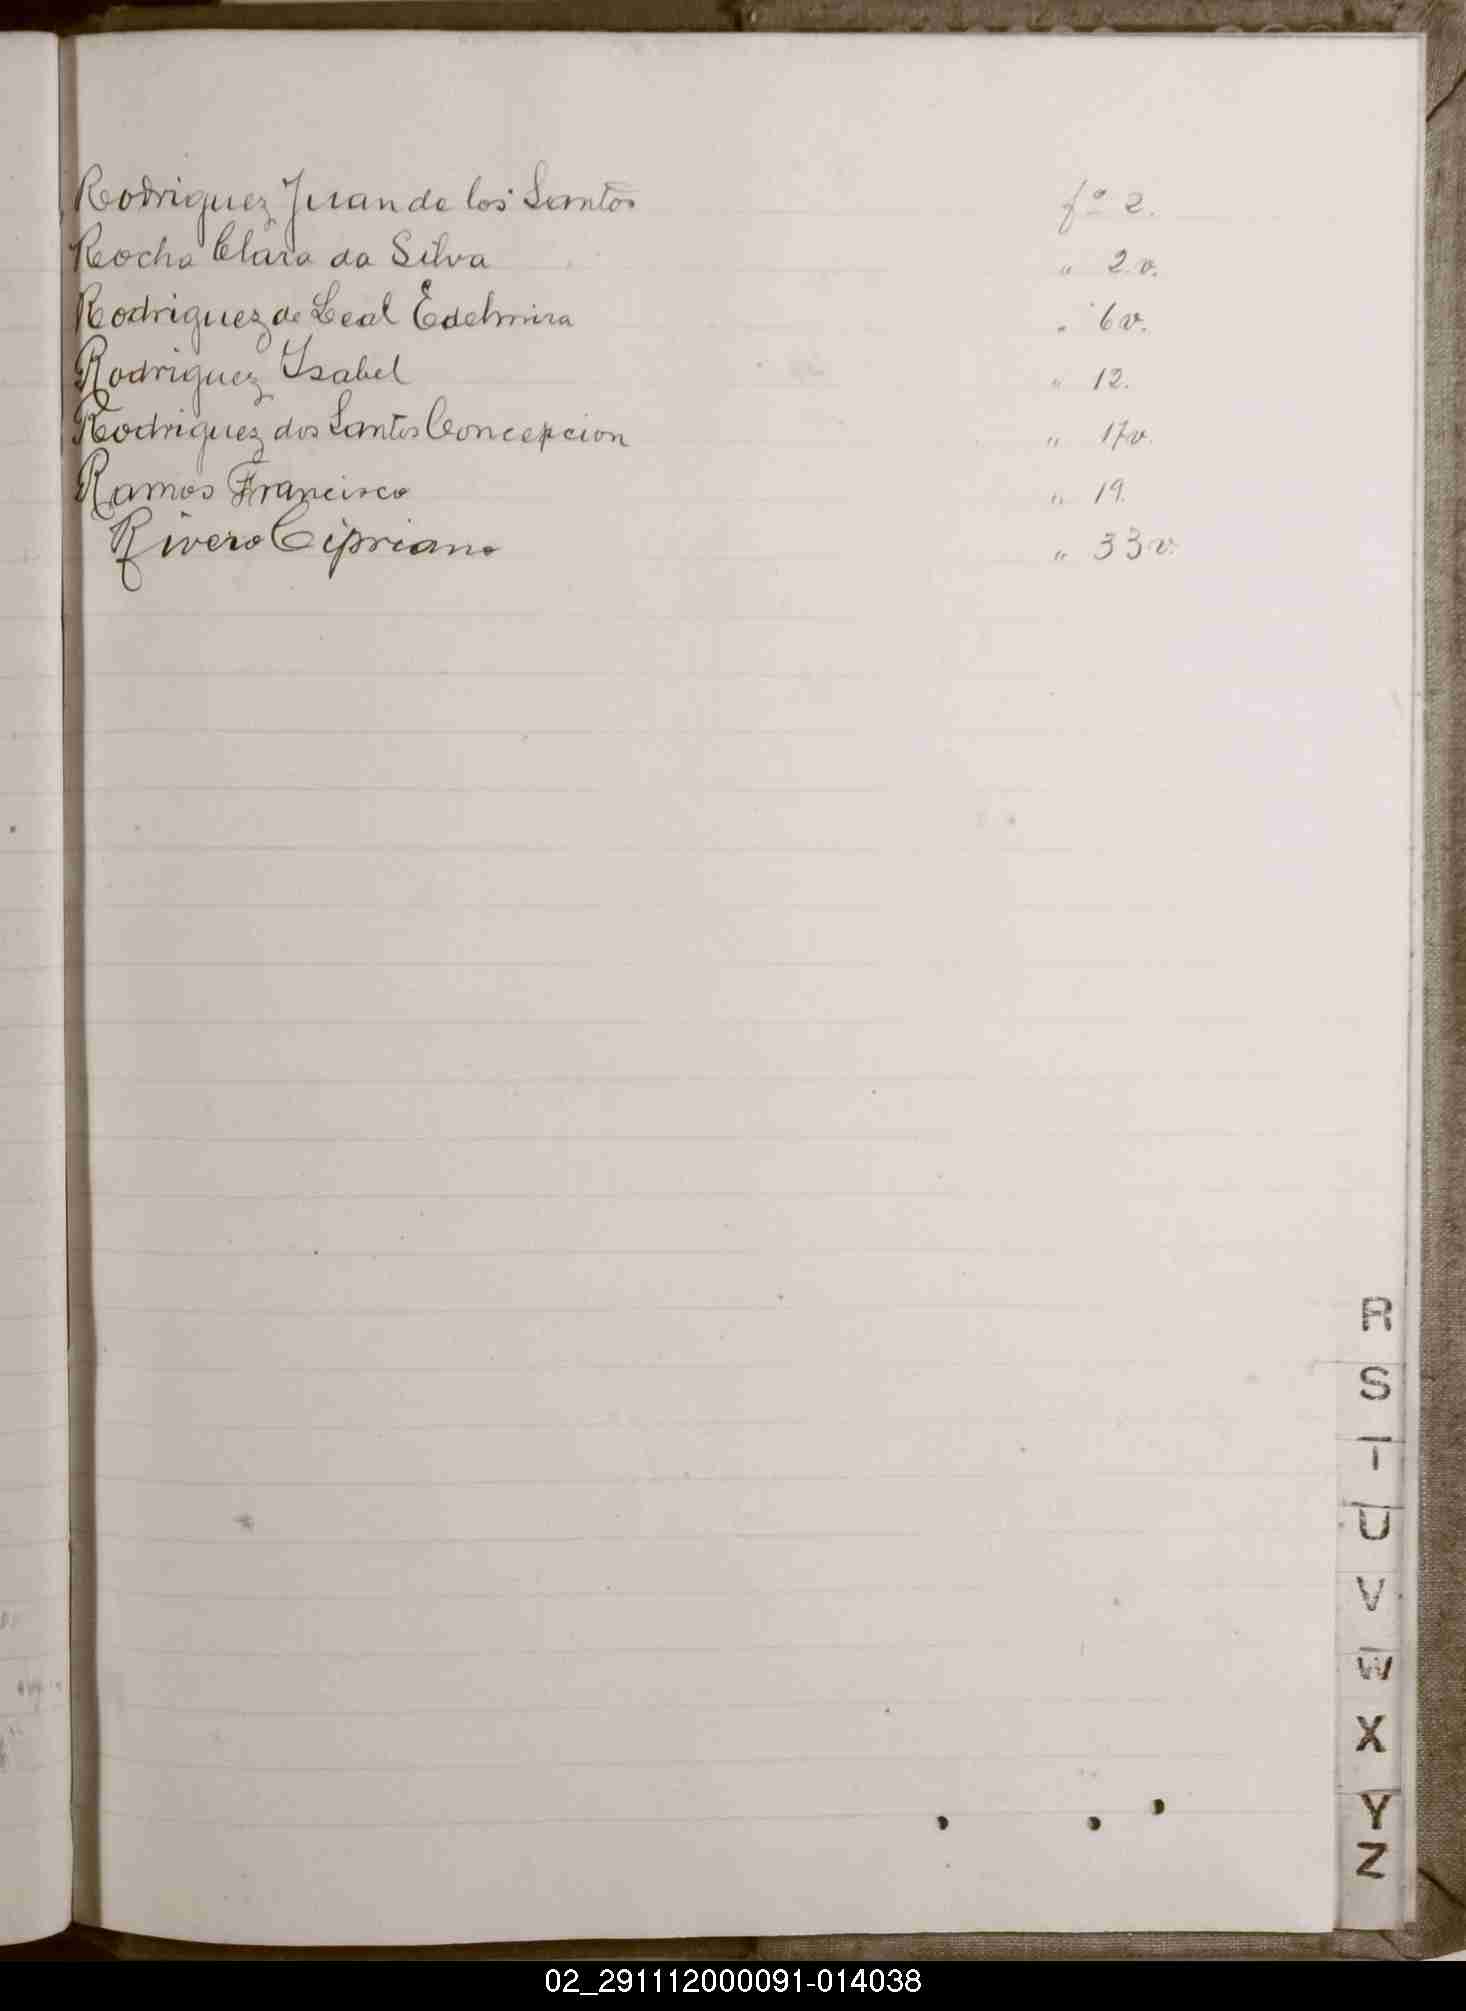 Rodriguez Juan de los Santos fº 2.
Rocha Clara da Silva " 2 v.
Rodriguez de Leal Edelmira " 6 v.
Rodriguez Isabel " 12.
Rodriguez dos Santos Concepcion " 17 v.
Ramos Francisco " 19.
Rivero Cipriano " 33 v.
R
S
T
U
V
W
X
Y
Z
02_291112000091-014038